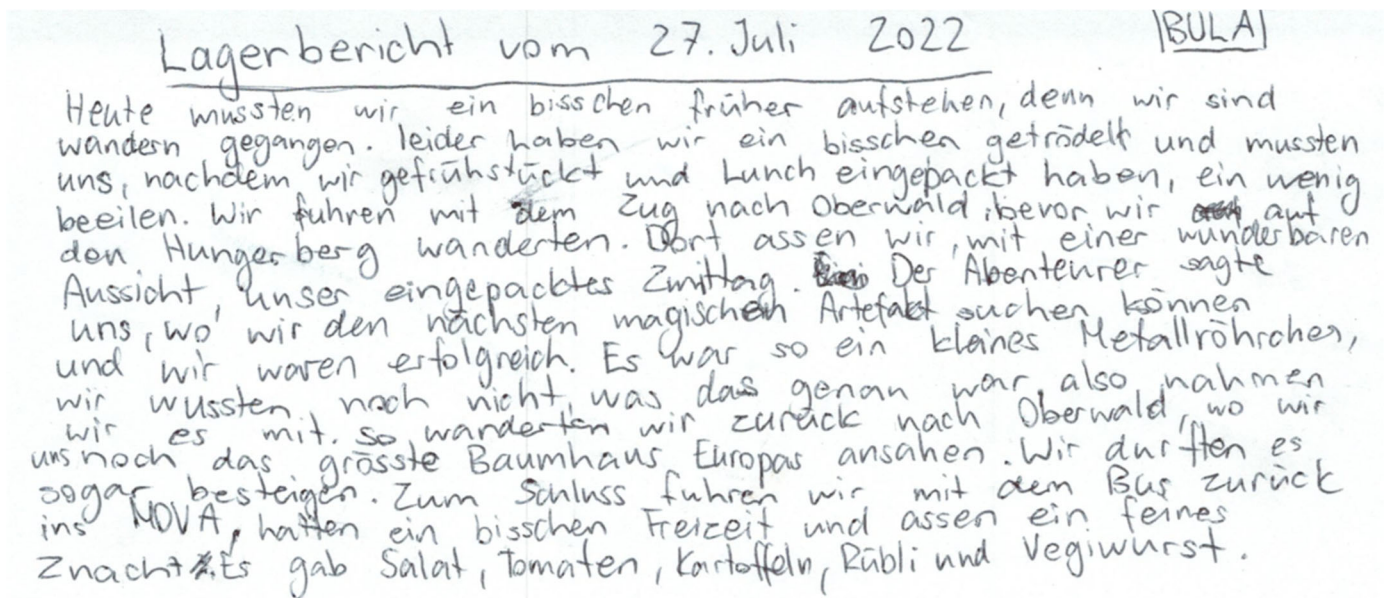 Lagerbericht vom 27. Juli 2022 BULA
Heute mussten wir ein bisschen früher aufstehen, denn wir sind
wandern gegangen. leider haben wir ein bisschen getrödelt und mussten
uns, nachdem wir gefrühstückt und Lunch eingepackt haben, ein wenig
beeilen. Wir fuhren mit dem Zug nach Oberwald, bevor wir auf
den Hungerberg wanderten. Dort assen wir, mit einer wunderbaren
Aussicht, unser eingepacktes Zmittag. Der Abenteurer sagte
uns, wo wir den nächsten magischen Artefakt suchen können
und wir waren erfolgreich. Es war so ein kleines Metallröhrchen,
wir wussten noch nicht, was das genau war, also nahmen
wir es mit. So wanderten wir zurück nach Oberwald, wo wir
uns noch das grösste Baumhaus Europas ansahen. Wir durften es
sogar besteigen. Zum Schluss fuhren wir mit dem Bus zurück
ins MOVA, hatten ein bisschen Freizeit und assen ein feines
Znacht. Es gab Salat, Tomaten, Kartoffeln, Rübli und Vegiwurst.